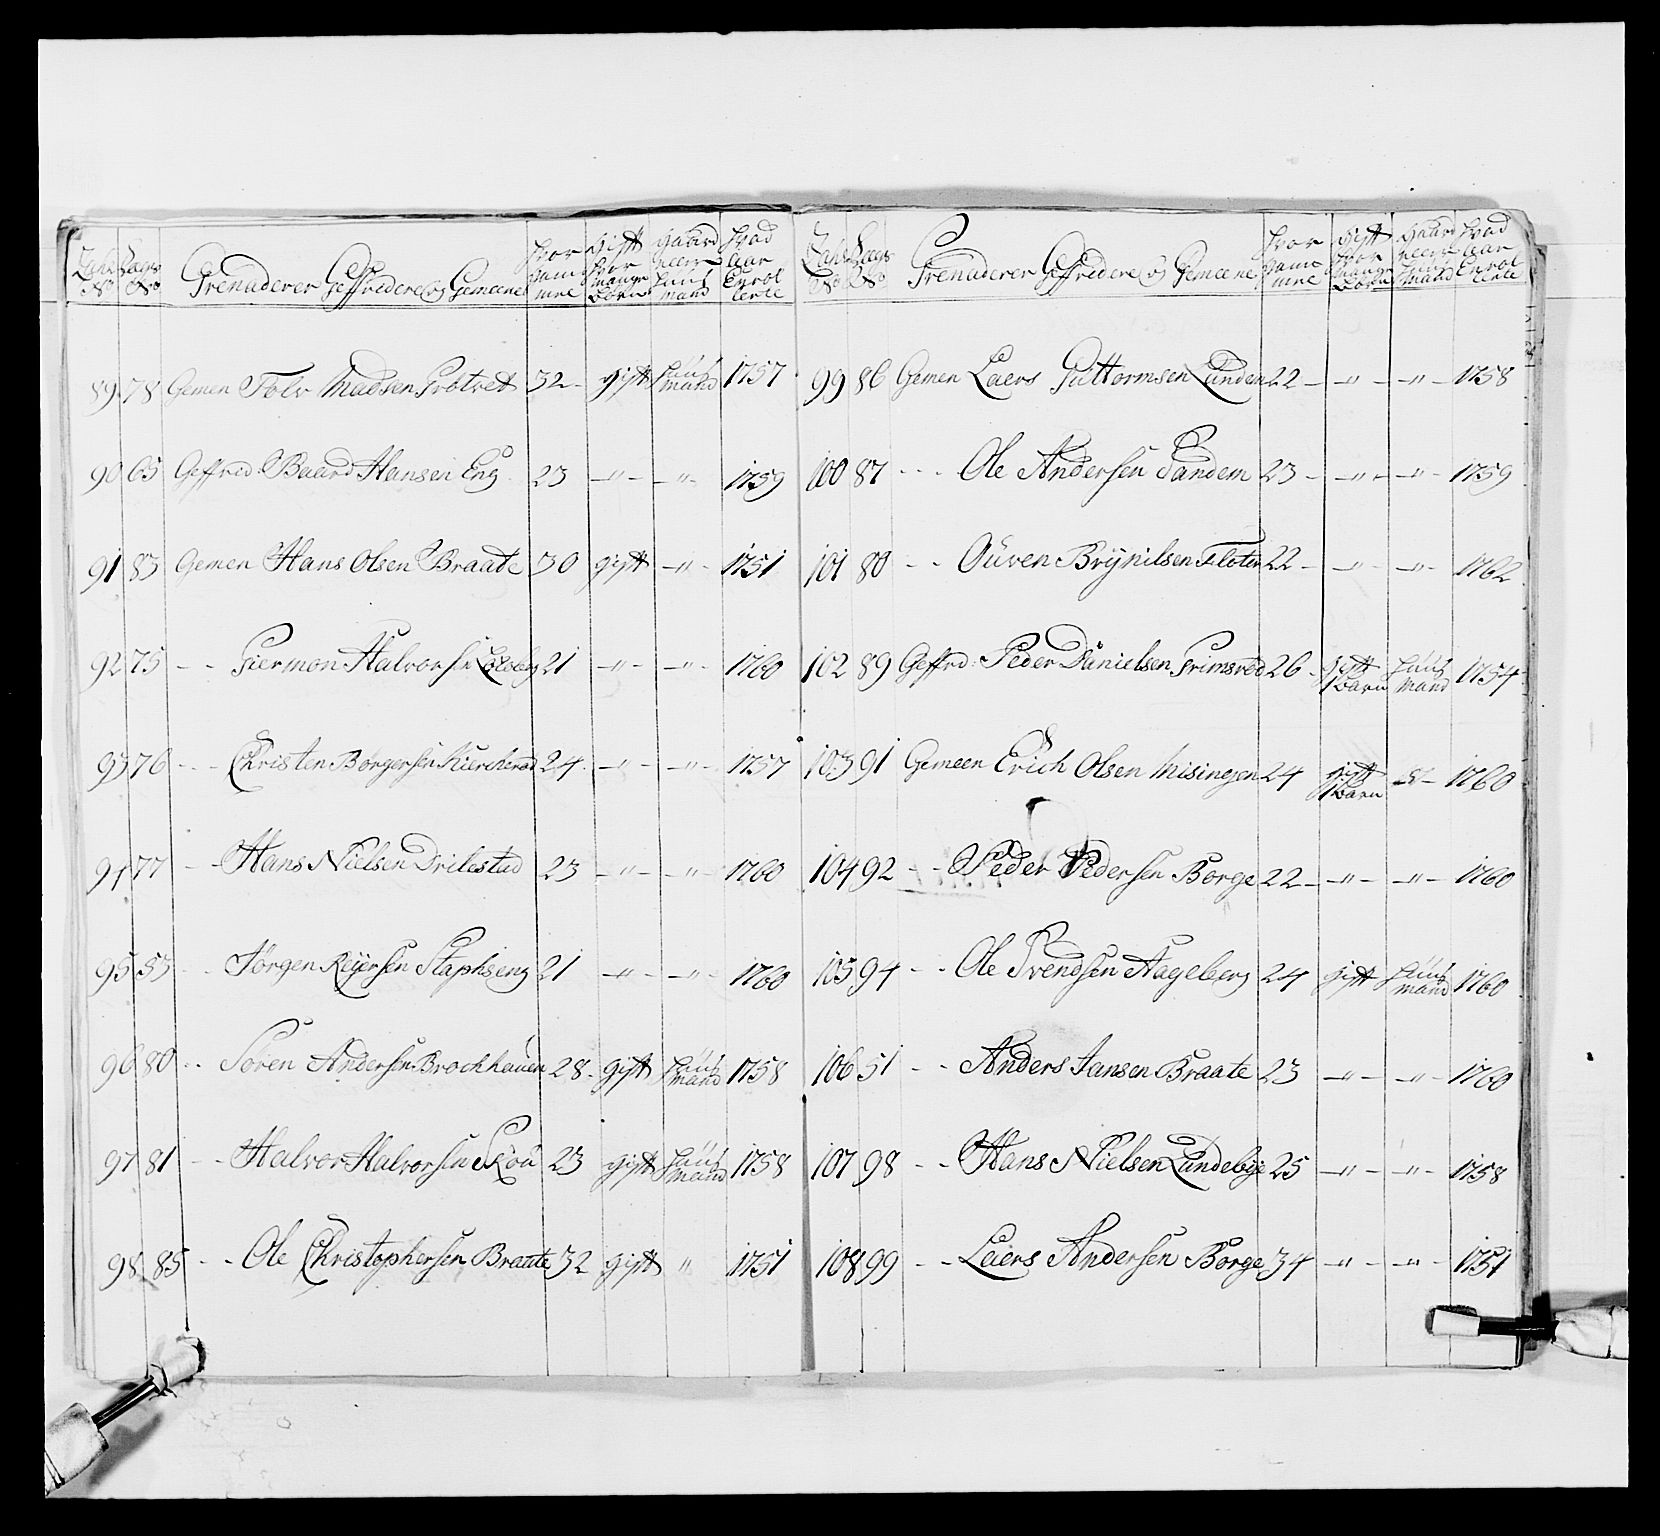 Zahl No | Lægs No | Grenaderer Geffridere og Gemeene | hvor gam mel | gift hvor mange Børn | gaard neere huus mand | hvad Aar Enrol lerte
89 | 78 | Gemen Tolv Madsen Grotvet | 32 | gift | huus mand | 1757
90 | 65 | Geffred: Baard Hansen Eng | 23 | —"— | —"— | 1759
91 | 83 | Gemen Hans Olsen Braate | 30 | gift | —"— | 1751
92 | 75 | - - Giermon Halvorsen | 21 | —"— | —"— | 1760
93 | 76 | - - Christen Børgersen Kircherød | 24 | —"— | —"— | 1757
94 | 77 | - - Hans Nielsen Drilestad | 23 | —"— | —"— | 1760
95 | 55 | - - Jørgen Reyersen Slaphseng | 21 | —"— | —"— | 1760
96 | 80 | - - Søren Andersen Brochhauen | 28 | gift | huus mand | 1758
97 | 81 | - - Halvor Halvorsen Skou | 23 | gift | huus mand | 1758
98 | 85 | - - Ole Christophersen Braate | 32 | gift | " | 1751
Zahl No | Lægs No | Grenaderer Geffridere og Gemeene | hvor gam mel | gift hvor mange Børn | gaard neere huus mand | hvad Aar Enrol lerte
99 | 86 | Gemen Laers Guttormsen Lunden | 22 | —"— | —"— | 1758
100 | 87 | - - - Ole Andersen Sandem | 23 | —"— | —"— | 1759
101 | 80 | - - Ouven Brynilsen Floten | 22 | —"— | —"— | 1762
102 | 89 | Geffrd: Peder Danielsen Grimsrød | 26 | gift 1 Barn | huus mand | 1754
103 | 91 | Gemeen Erich Olsen Misingen | 24 | gift 1 Barn | —"— | 1760
104 | 92 | - - Peder Pedersen Borge | 22 | —"— | —"— | 1760
105 | 94 | - - Ole Svendsen Hageberg | 24 | gift | huus mand | 1760
106 | 51 | - - Anders Jansen Braate | 23 | —"— | —"— | 1760
107 | 98 | - - Hans Nielsen Lundebye | 25 | —"— | —"— | 1758
108 | 99 | - - Laers Andersen Borge | 34 | —"— | —"— | 1751